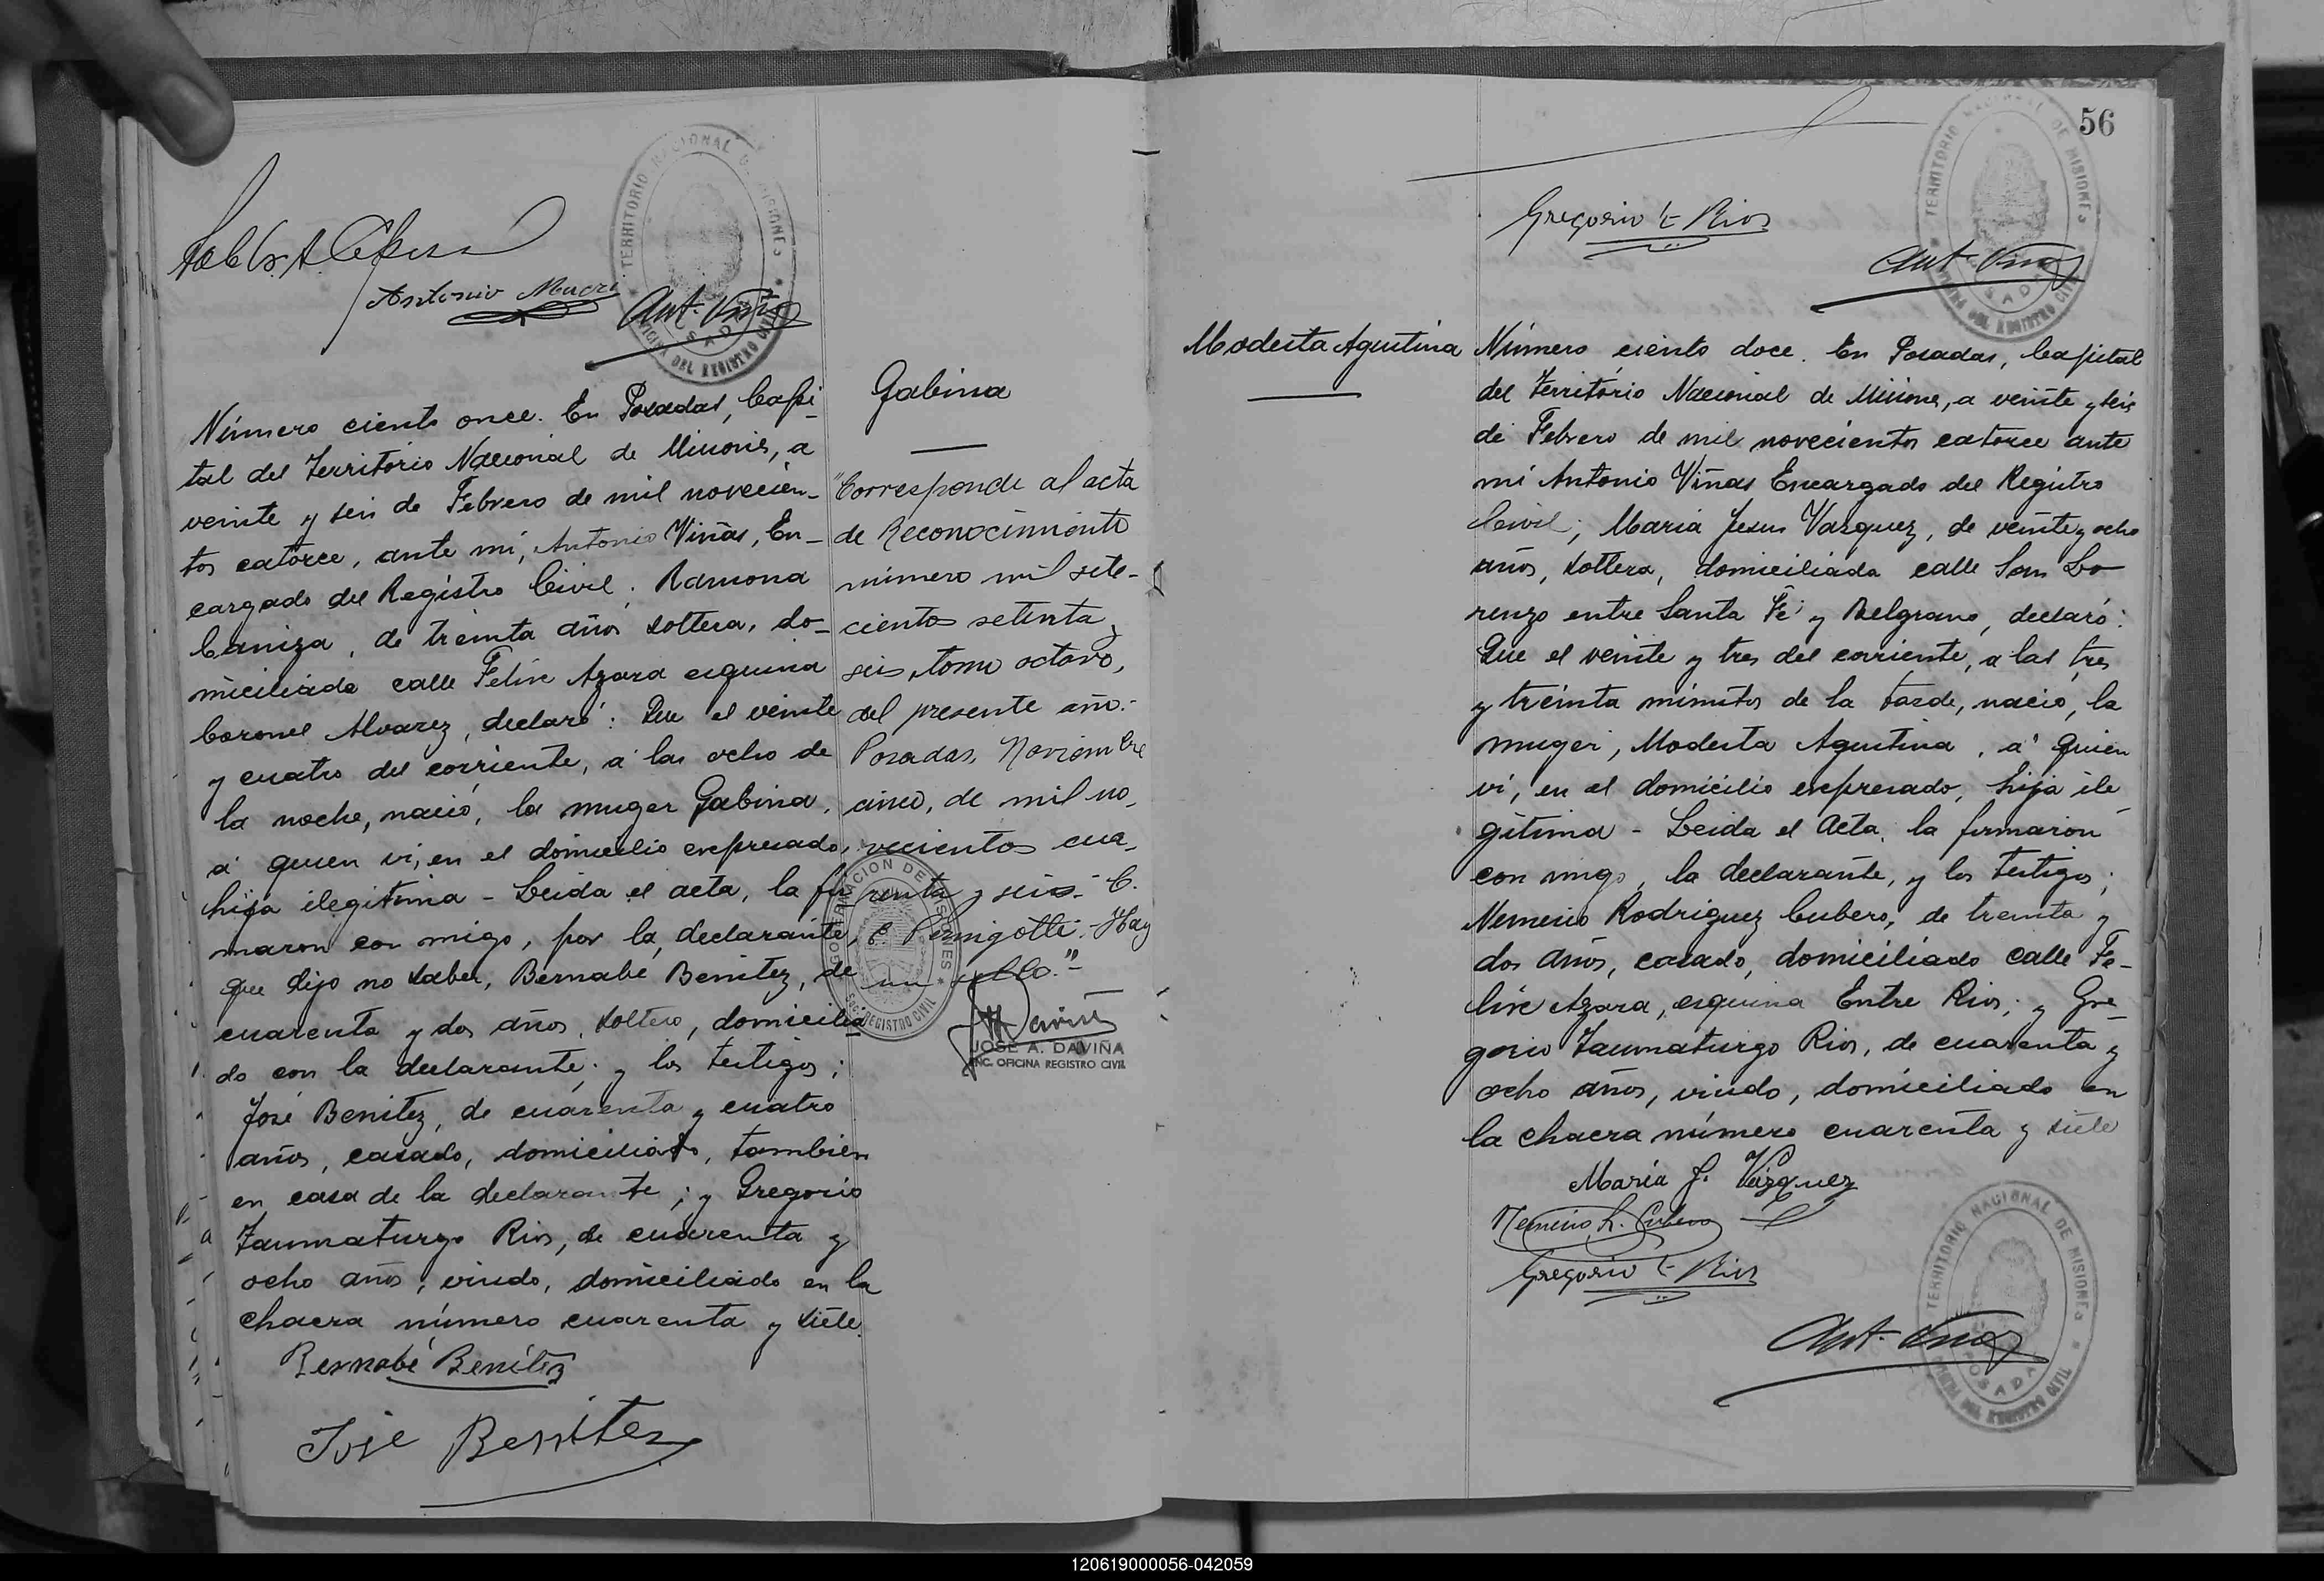 Antonio
Ant. Viñas
TERRITORIO NACIONAL DE MISIONES
OFICINA DEL REGISTRO CIVIL
POSADAS
Número ciento once. En Posadas, Capi-
tal del Territorio Nacional de Misiones, a
veinte y seis de Febrero de mil novecien-
tos catorce, ante mi, Antonio Viñas, En-
cargado del Registro Civil; Ramona
Caniza, de treinta años soltera, do-
miciliada calle Felix Azara esquina
Coronel Alvarez, declaró: Que el veinte
y cuatro del corriente, á las ocho de
la noche, nació, la muger Gabina,
á quien vi, en el domicilio expresado,
hija ilegitima - Leida el acta, la fir
maron con migo, por la declarante,
que dijo no saber, Bernabé Benitez, de
cuarenta y dos años, soltero, domicilia
do con la declarante; y los testigos;
José Benitez, de cuarenta y cuatro
años, casado, domiciliado, tambien
en casa de la declarante; y Gregorio
Taumaturgo Rios, de cuarenta y
ocho años, viudo, domiciliado en la
chacra número cuarenta y siete.
Bernabé Benítez
José Benitez
Gabina
"Corresponde al acta
de Reconocimiento
número mil sete-
cientos setenta y
seis, tomo octavo,
del presente año.-
Posadas, Noviembre
cinco, de mil no-
vecientos cua-
renta y seis.- C.
C. Peningotti.- Hay
un sello."-
GOBERNACION DE MISIONES
REGISTRO CIVIL
JOSE A. DAVIÑA
ENC. OFICINA REGISTRO CIVIL
56
TERRITORIO NACIONAL DE MISIONES
OFICINA DEL REGISTRO CIVIL
POSADAS
Gregorio T Rios
Ant. Viñas
Modesta Agustina
Número ciento doce. En Posadas, Capital
del Territorio Nacional de Misiones, a veinte y seis
de Febrero de mil novecientos catorce ante
mi Antonio Viñas Encargado del Registro
Civil; Maria Jesus Vazquez, de veinte y ocho
años, soltera, domiciliada calle San Lo-
renzo entre Santa Fé y Belgrano, declaró:
Que el veinte y tres del corriente, a las tres
y treinta minutos de la tarde, nació, la
muger, Modesta Agustina, á quien
vi, en el domicilio expresado, hija ile
gitima - Leida el Acta, la firmaron
con migo, la declarante, y los testigos;
Nemesio Rodriguez Cubero, de treinta y
dos años, casado, domiciliado calle Fe-
lix Azara, esquina Entre Rios; y Gre-
gorio Taumaturgo Rios, de cuarenta y
ocho años, viudo, domiciliado en
la chacra número cuarenta y siete
María J. Vázquez
Nemesio R. Cubero
Gregorio T Rios
Ant. Viñas
TERRITORIO NACIONAL DE MISIONES
OFICINA DEL REGISTRO CIVIL
POSADAS
120619000056-042059